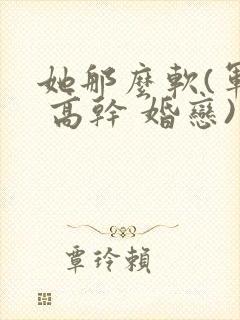 她那麼軟(軍
高幹 婚戀)
覃玲賴